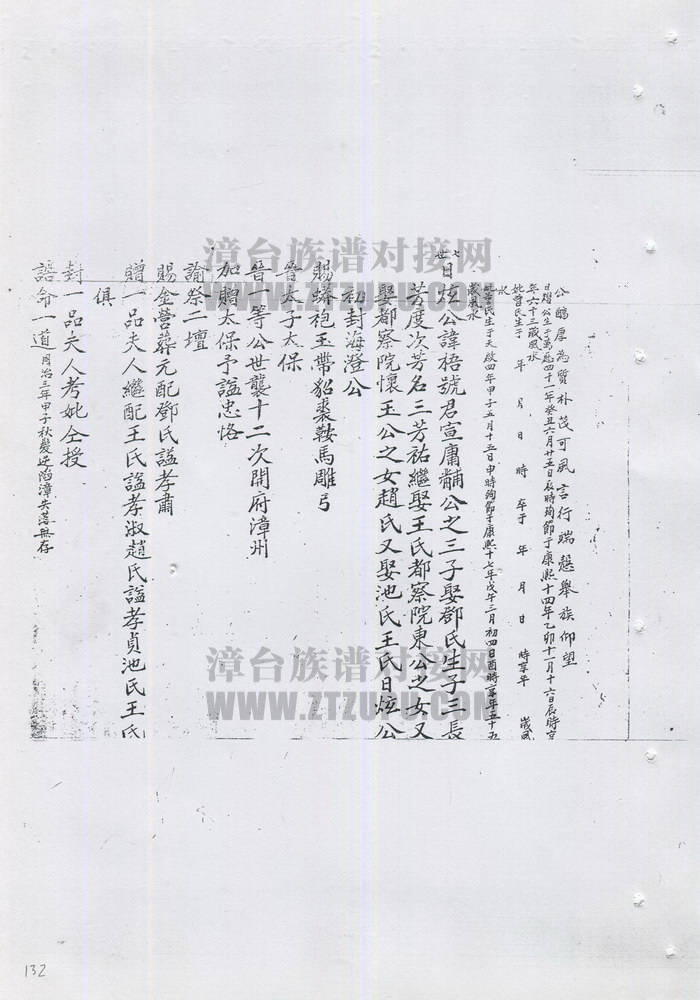 公醇厚為質朴茂可風言行端慤舉族仰望
日燈公生于萬厯四十一年癸丑六月廿五日辰時殉節于康熙十四年乙卯十一月十六日辰時享
年六十三歲風水
妣曹氏生于 年 月 日 時卒于 年 月 日 時享年 歲風
水
氏生于天啟四年甲子五月十三日申時殉節于康熙十七年戊午三月初四日酉時享年五十五
歲風水
七世
日炫公諱梧號君宣庸黼公之三子娶鄧氏生子三長
芳度次芳名三芳祐繼娶王氏都察院東公之女又
娶都察院懷玉公之女趙氏又娶池氏王氏日炫公
初封海澄公
賜蟒袍玉帶貂裘鞍馬雕弓
晉太子太保
晉一等公世襲十二次開府漳州
加贈太保予謚忠恪
諭祭二壇
賜金營葬元配鄧氏謚孝肅
贈一品夫人繼配王氏謚孝淑趙氏謚孝貞池氏王氏
俱
封一品夫人考妣仝授
誥命一道同治三年甲子秋髮逆陷漳失落無存
漳台族谱对接网
WWW.ZTZUPU.COM
漳台族谱对接网
WWW.ZTZUPU.COM
132